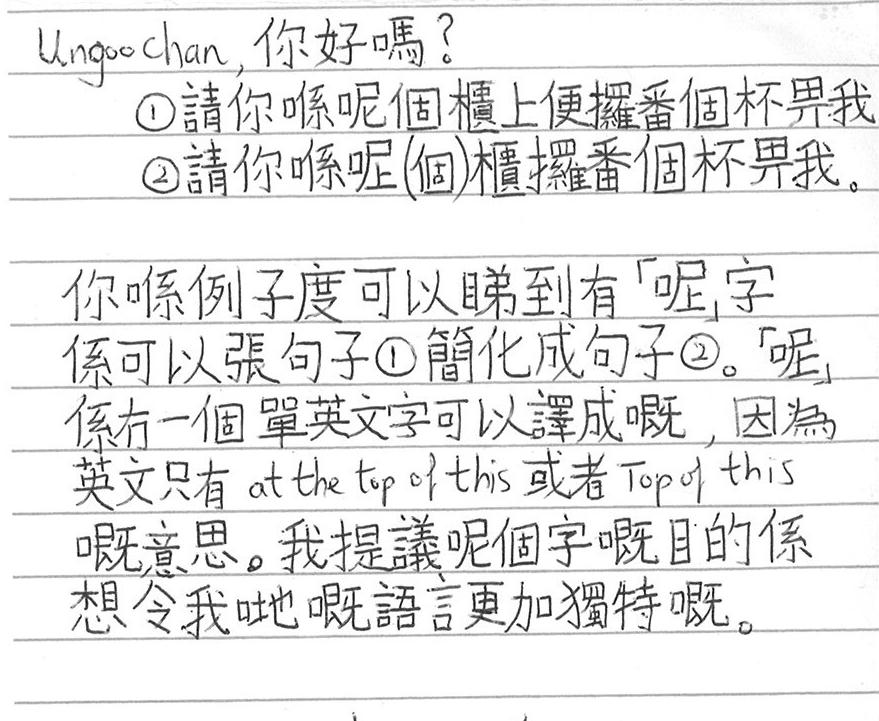 Ungoo chan, 你好嗎？
①請你喺呢個櫃上便攞番個杯畀我
②請你喺呢(個)櫃攞番個杯畀我。
你喺例子度可以睇到有「呢」字
係可以張句子①簡化成句子②。「呢」
係冇一個單英文字可以譯成嘅，因為
英文只有 at the top of this 或者 Top of this
嘅意思。我提議呢個字嘅目的係
想令我哋嘅語言更加獨特嘅。